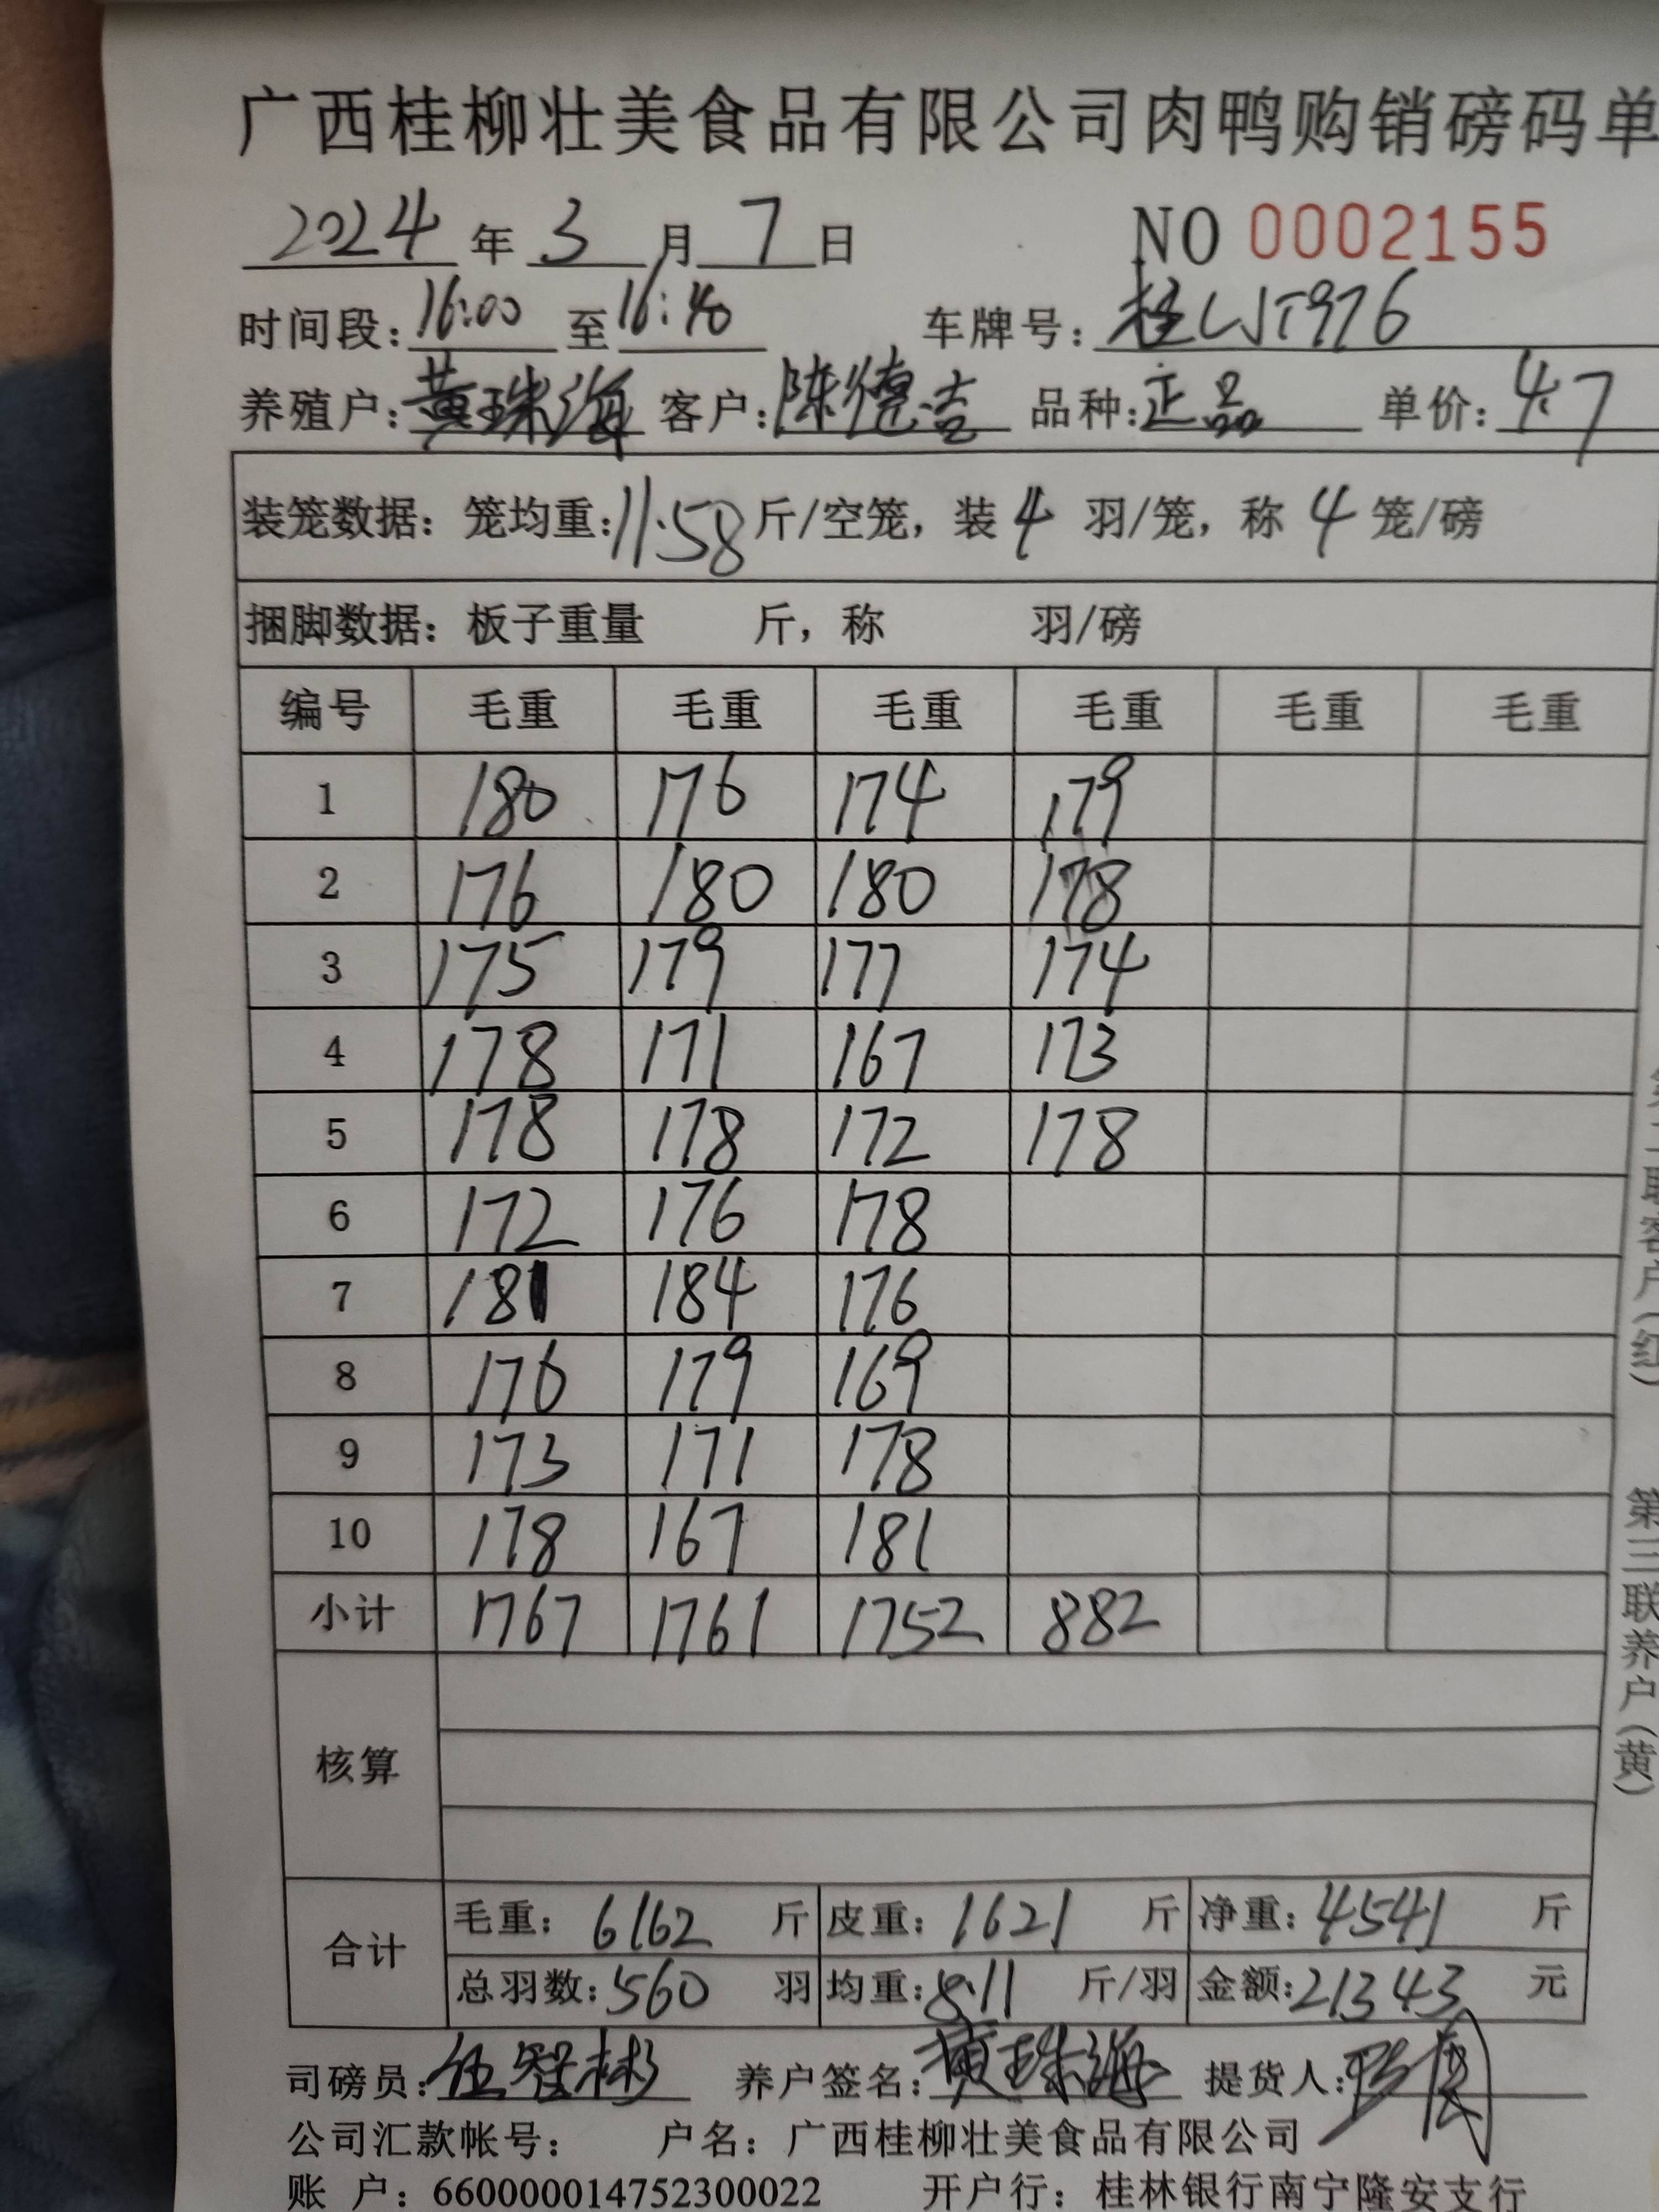 广西桂柳壮美食品有限公司肉鸭购销磅码单
2024年3月7日 NO 0002155
时间段:16:00至16:40 车牌号:桂LJT976
养殖户:黄珠海 客户:陈德吉 品种:正品 单价:4.7
装笼数据:笼均重:11.58斤/空笼,装4羽/笼,称4笼/磅
捆脚数据:板子重量 斤,称 羽/磅
编号 毛重 毛重 毛重 毛重 毛重 毛重
1 180 176 174 179
2 176 180 180 178
3 175 179 177 174
4 178 171 167 173
5 178 178 172 178
6 172 176 178
7 181 184 176
8 176 179 169
9 173 171 178
10 178 167 181
小计 1767 1761 1752 882
核算
合计
毛重:6162斤 皮重:1621斤 净重:4541斤
总羽数:560羽 均重:8.11斤/羽 金额:21343元
司磅员:伍智彬 养户签名:黄珠海 提货人:
公司汇款帐号: 户名:广西桂柳壮美食品有限公司
账户:660000014752300022 开户行:桂林银行南宁隆安支行
联客户(红)
第三联养户(黄)